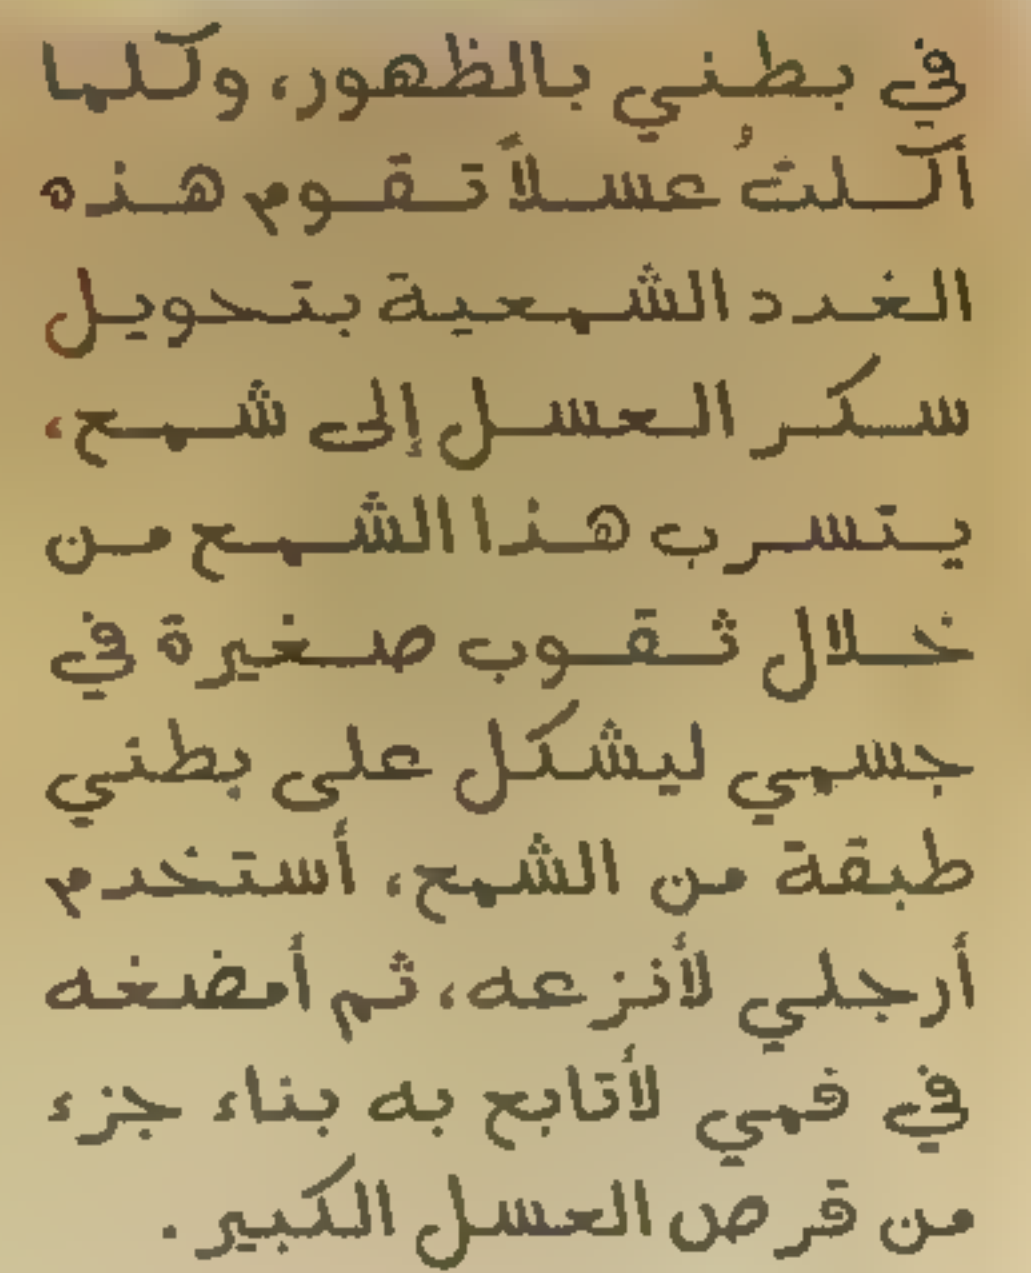 في بطني بالظهور، وكلما
أكلتُ عسلاً تقوم هذه
الغدد الشمعية بتحويل
سكر العسل إلى شمح،
يتسرب هذا الشمح من
خلال ثقوب صغيرة في
جسمي ليشكل على بطني
طبقة من الشمح، أستخدم
أرجلي لأنزعه، ثم أمضغه
في فمي لأتابع به بناء جزء
من قرص العسل الكبير.